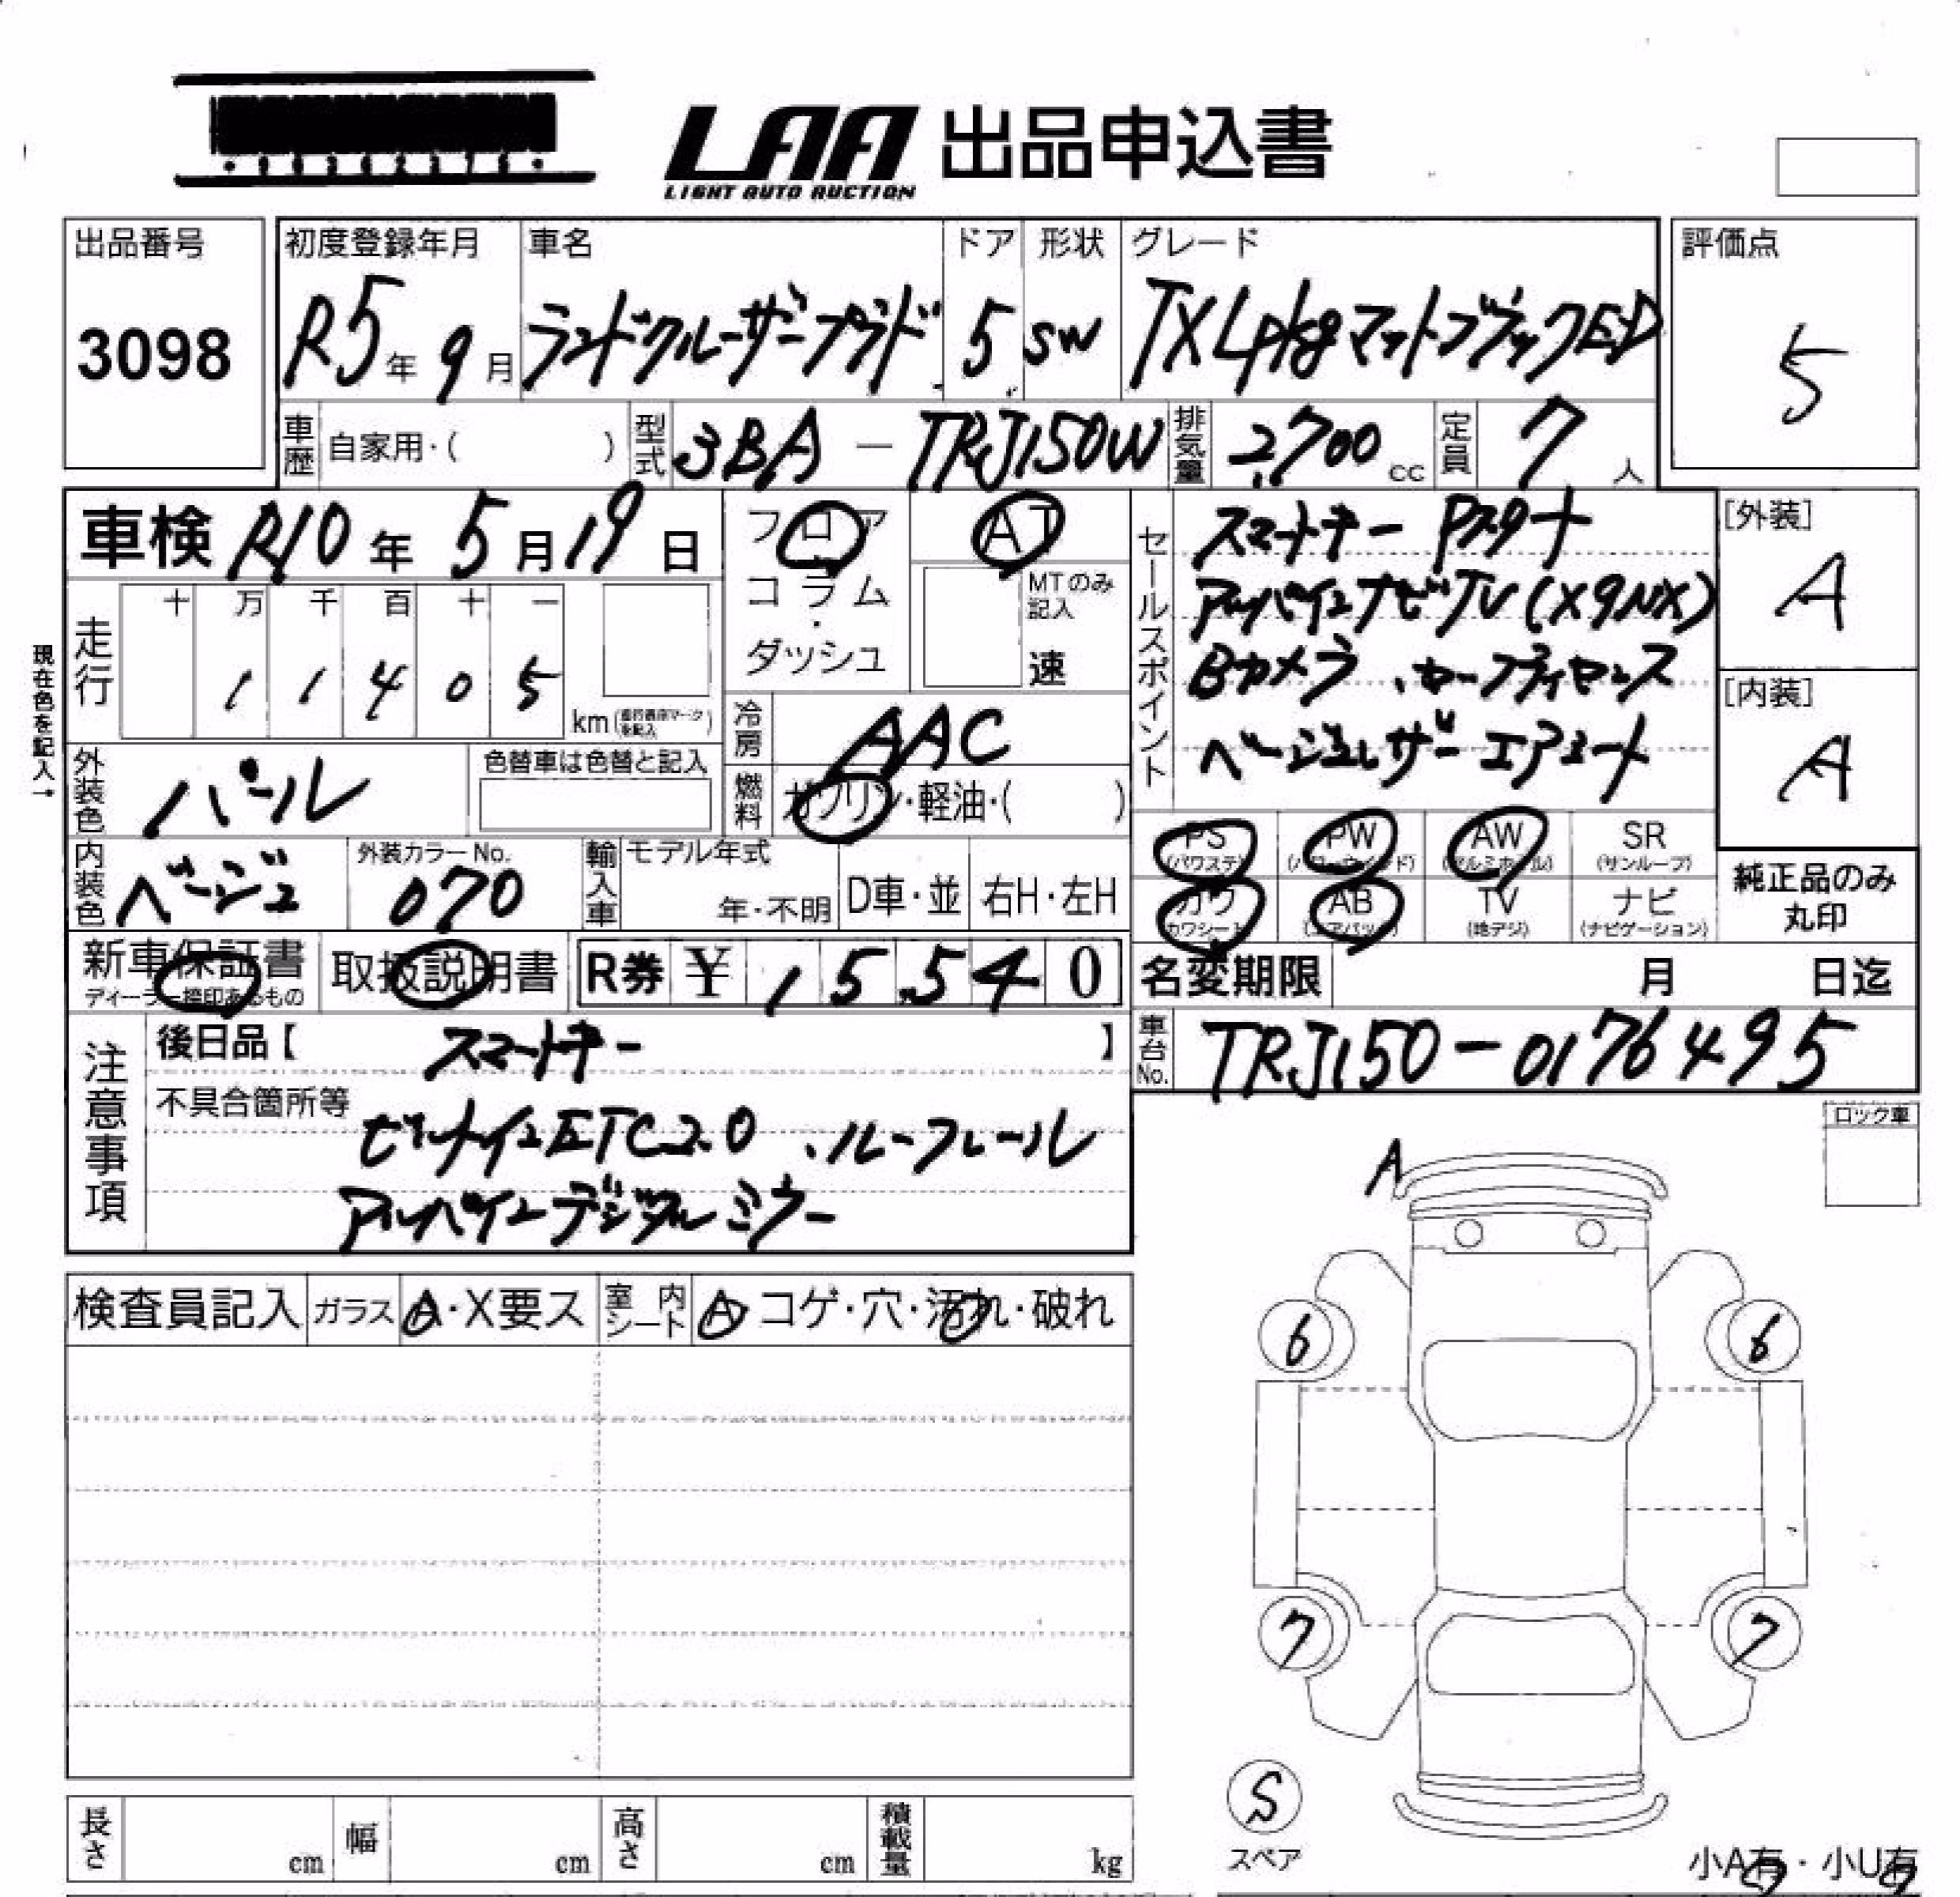 LAA 出品申込書
LIGHT AUTO AUCTION
出品番号 初度登録年月 車名 ドア 形状 グレード 評価点
3098 R5年 9月 ランドクルーザープラド 5 SW TX Lpkg マットブラックED 5
車歴 自家用・( ) 型式 3BA - TRJ150W 排気量 2,700 cc 定員 7 人
車検 R10年 5月19日 フロア AT
コラム・ MTのみ記入
ダッシュ 速
走行 十 万 千 百 十 一
1 1 4 0 5 km
現在色を記入→
セールスポイント スマートキー Pスタート
アルパインナビTV(X9NX)
Bカメラ、セーフティセンス
ベージュレザーエアシート
[外装]
A
[内装]
A
冷房 AAC
燃料 ガソリン・軽油・( )
外装色 パール 色替車は色替と記入
内装色 ベージュ 外装カラーNo. 070
輸入車 モデル年式 年・不明 D車・並 右H・左H
PS (パワステ) PW (パワーウインドウ) AW (アルミホイール) SR (サンルーフ)
カワ (カワシート) AB (エアバック) TV (地デジ) ナビ (ナビゲーション)
純正品のみ
丸印
新車保証書 ディーラー捺印あるもの 取扱説明書 R券 ¥ 1 5,5 4 0
名変期限 月 日迄
車台No. TRJ150-0176495
注意事項 後日品【 スマートキー 】
不具合箇所等
ビルトインETC2.0、ルーフレール
アルパインデジタルミラー
ロック車
A
検査員記入 ガラス A・X要ス 室内シート A コゲ・穴・汚れ・破れ
6 6
7 7
S
スペア
長さ cm 幅 cm 高さ cm 積載量 kg
小A有・小U有